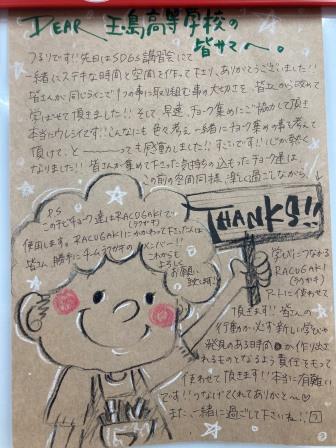 DEAR 玉島高等学校の
皆サマへ。
つるりです!!先日はSDGs講習会にて
一緒にステキな時間と空間を作って下さり、ありがとうございました!!
皆さんが同じラインで1つの事に取り組む事の大切さを、皆さんから改めて
学ばせて頂きました!!そして早速、チョーク集めにご協力して頂き
本当にウレシイです!!こんなにも色々考え一緒にチョーク集めの事を考えて
頂けて、と———っても感動しました!!すごいです!!心が熱く
なりました!!皆さんが集めて下さった気持ちの込もったチョーク達は
この前の空間同様、楽しく過ごしながら、
THANKS!!
学びにつながる
RACUGAKI
(ラクガキ)
アートに使わせて
頂きます!!皆さんの
行動が必ず新しい学びや
発見のある時間が作り出さ
れるものとなるよう責任をもって
使わせて頂きます!!本当に有難い
です!!つなげてくれてありがと〜♡
また、一緒に過ごして下さいね!!
P.S
このチビチョーク達はRACUGAKIで
(ラクガキ)
使用します。RACUGAKIにかかわって下さった
皆さん、勝手にチームラクガキの
メンバー!!
これからも
よろしく
お願い
致します!